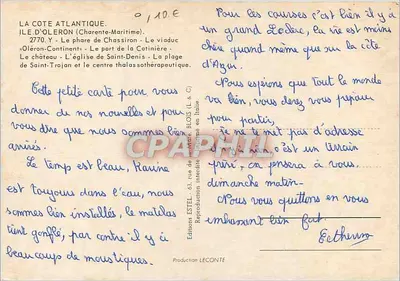 LA COTE ATLANTIQUE.
ILE D'OLERON (Charente-Maritime).
2770.Y - Le phare de Chassiron - Le viaduc
«Oléron-Continent» - Le port de la Cotinière -
Le château - L'église de Saint-Denis - La plage
de Saint-Trojan et le centre thalassothérapeutique.
0,10 €
Cette petite carte pour vous
donner de nos nouvelles et pour
vous dire que nous sommes bien
arrivés.
Le temps est beau, Karine
est toujours dans l'eau, nous
sommes bien installés, le matelas
tient gonflé, par contre il y a
beaucoup de moustiques.
Editions ESTEL - 63, rue de BLOIS (L. & C)
Reproduction interdite en Italie
Pour les courses c'est bien il y a
un grand Leclerc, la vie est moins
chère quand même que sur la côte
d'Azur.
Nous espérons que tout le monde
va bien, vous devez vous préparer
pour partir,
je ne te met pas d'adresse
c'est un terrain
privé, on pensera à vous
dimanche matin.
Nous vous quittons en vous
embrassant bien fort.
Production LECONTE
CPAPHIL.COM